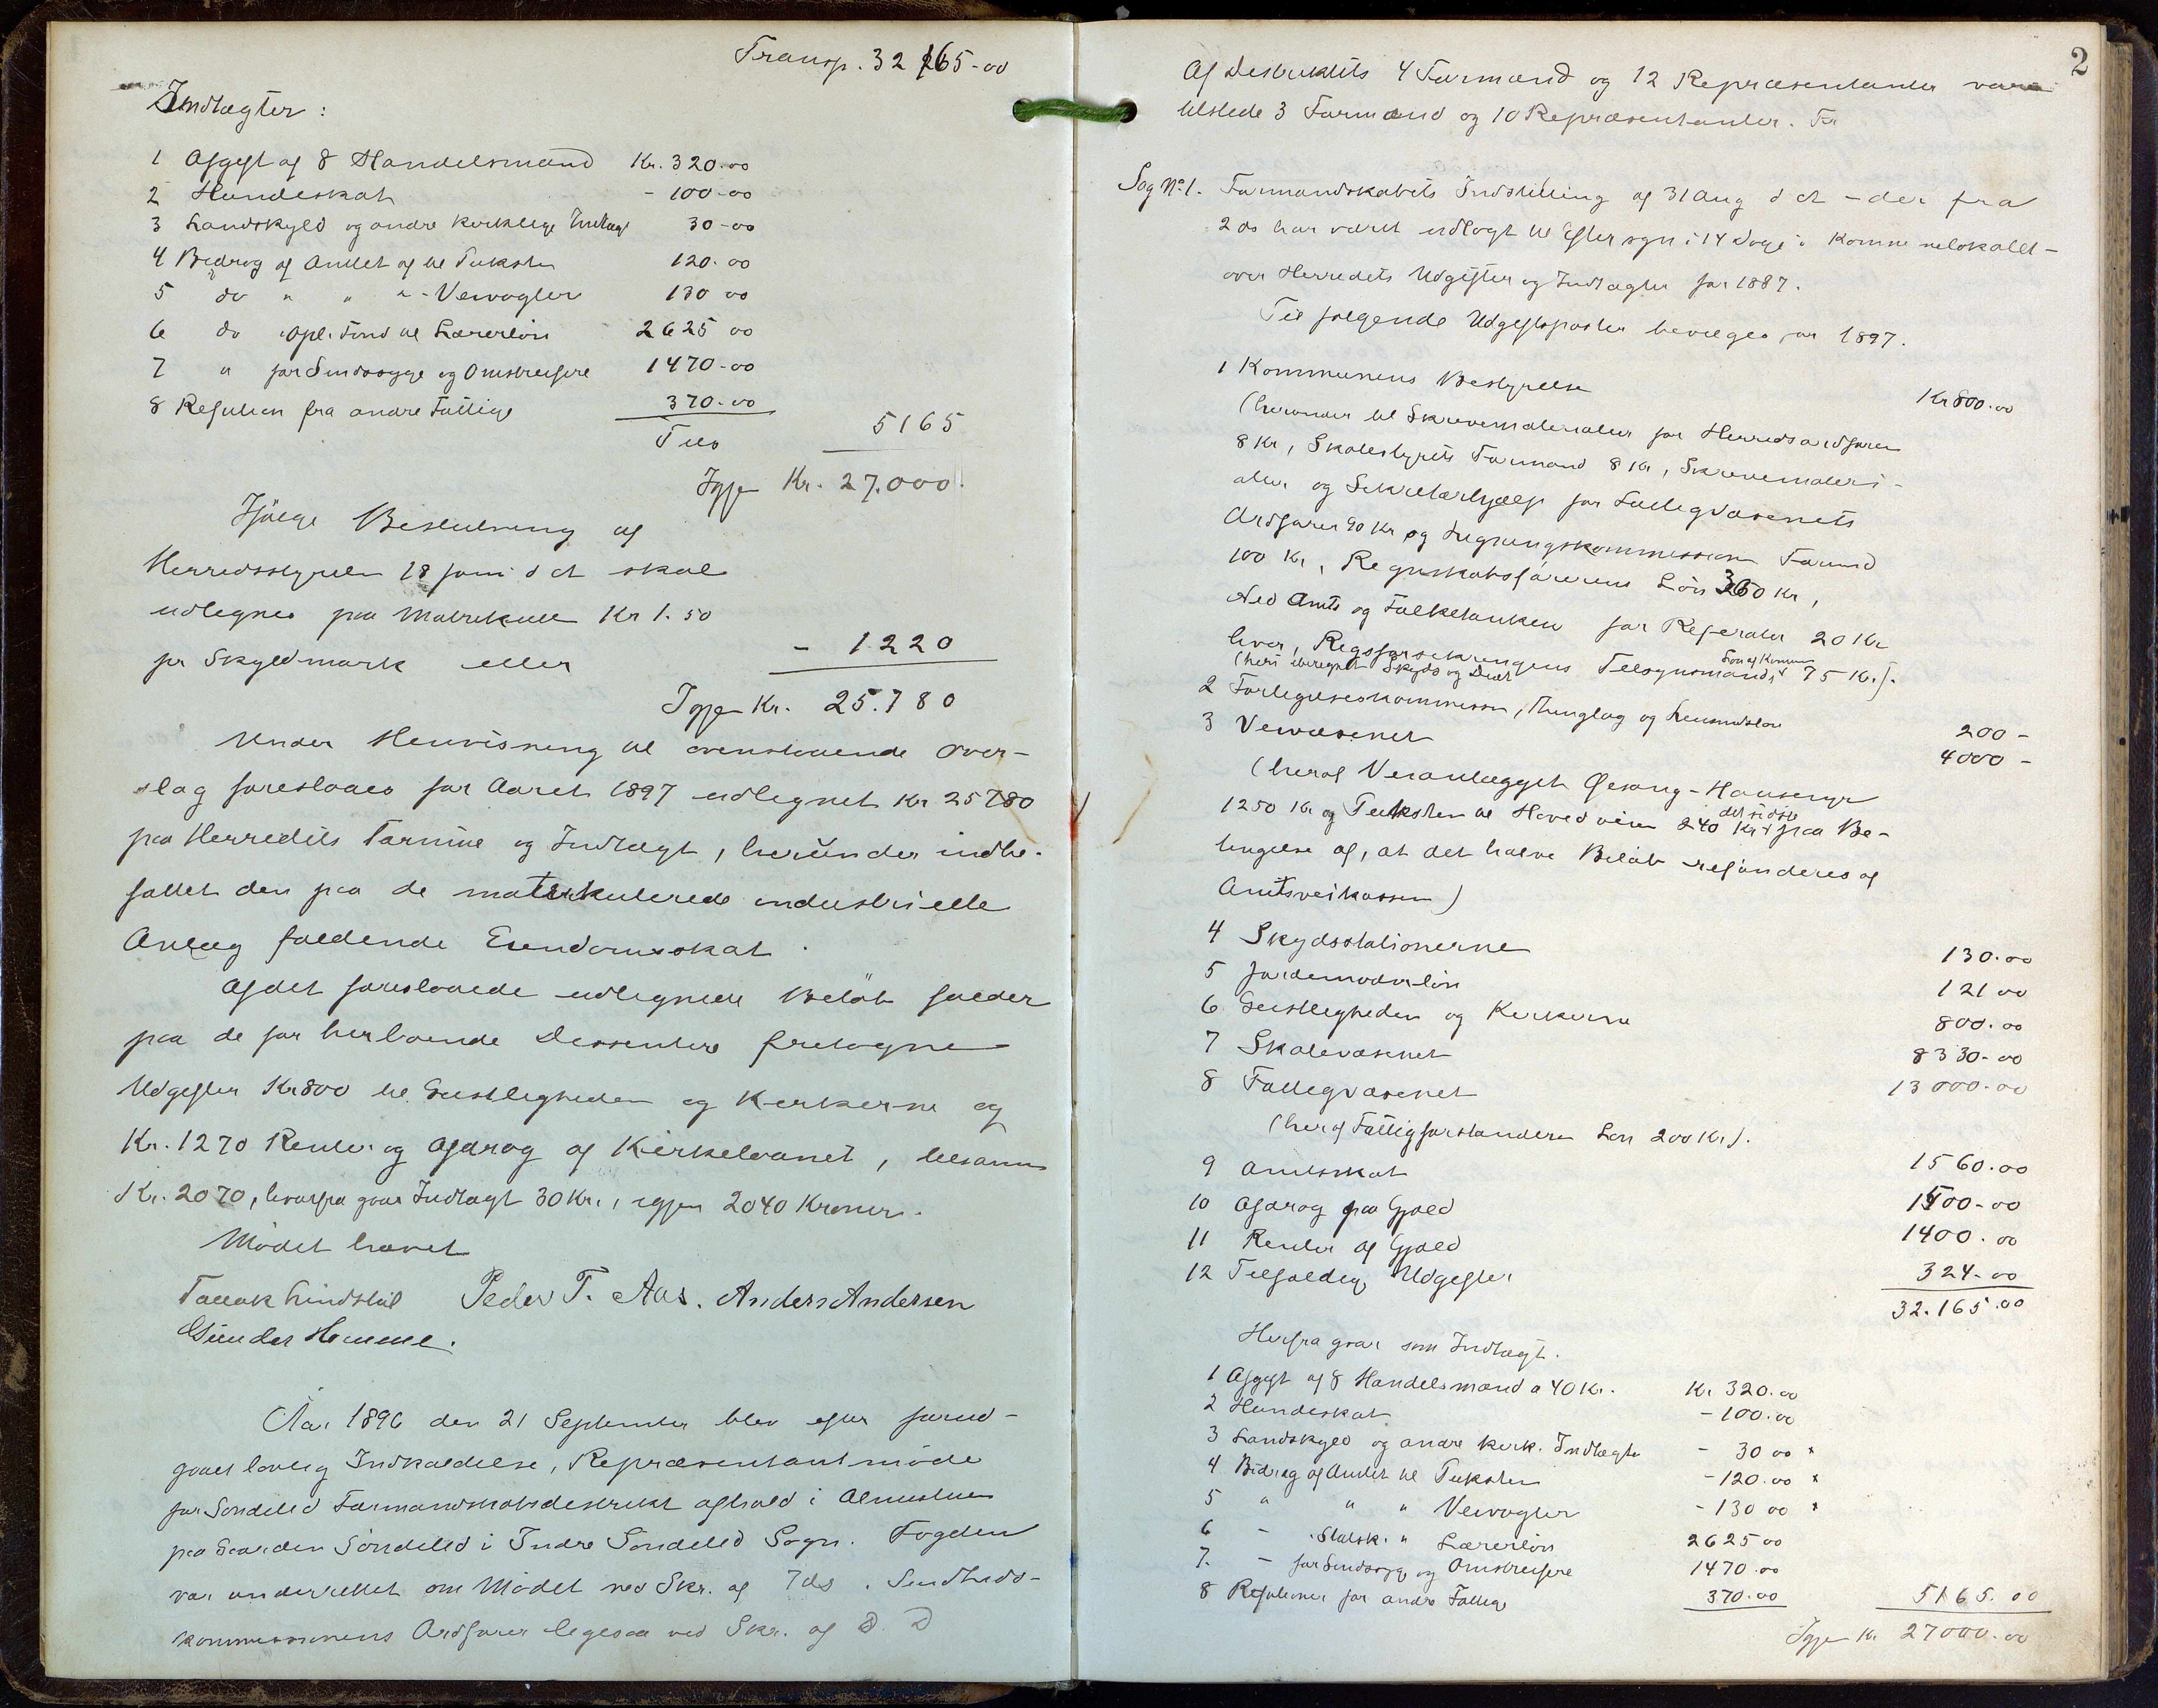 Transp. 32 165-00
Indtægter:
1 Afgift af 8 Handelsmænd Kr. 320.00
2 Hundeskat - 100-00
3 Landskyld og andre kirklige Indtægt 30-00
4 Bidrag af Amtet af til Puksten 120.00
5 do " " " - Veivogter 130 00
6 do Opl. Fond til Lærerløn 2625 00
7 " for Sindssyge og Omstreifere 1470-00
8 Refusion fra andre Fattige 370-00
Tils 5165
Igjen Kr. 27.000.
Ifølge Beslutning af
Herredsstyrelsen 18 juni d A skal
udlignes paa Matrikulen Kr 1.50
pr Skyldmark eller - 1220
Igjen Kr. 25.780
Under Henvisning til ovenstaaende Over-
slag foreslaaes for Aaret 1897 udlignet Kr 25780
paa Herredets Formue og Indtægt, herunder indbe-
fattet den paa de matrikulerede industrielle
Anlæg faldende Eiendomsskat.
Af det foreslaaede udlignede Beløb falder
paa de for herboende Dissentere fretagne
Udgifter Kr 800 til Geistligheden og Kirkerne og
Kr. 1270 Renter og Afdrag af Kirkelaanet, tilsamm
Kr. 2070, hvorfra gaar Indtægt 30 Kr., igjen 2040 Kroner.
Mødet hævet
Tallak Lindstøl Peder T. Aas. Anders Andersen
Gunder Hemme.
Aar 1896 den 21 September blev efter forud-
gaaet lovlig Indkaldelse, Repræsentantmøde
for Søndeled Formandskabsdistrikt afholdt i Almuestuen
paa Gaarden Søndeled i Indre Søndeled Sogn. Fogden
var underrettet om Mødet ved Skr. af 7 ds. Sundheds-
kommissionens Ordfører ligesaa ved Skr. af D. D
2
Af Distriktets 4 Formænd og 12 Repræsentanter vare
tilstede 3 Formænd og 10 Repræsentanter. For
Sag No 1. Formandskabets Indstilling af 31 Aug d A - der fra
2 ds har været udlagt til Eftersyn i 14 Dage i Kommunelokalet -
over Herredets Udgifter og Indtægter for 1887.
Til følgende Udgiftsposter bevilges for 1897.
1 Kommunens Bestyrelse Kr 800.00
(herunder til Skrivematerialier for Herredsordføren
8 Kr, Skolestyrets Formand 8 Kr, Skrivemateri-
alier og Sekretærhjælp for Fattigvæsenets
Ordfører 90 Kr og Ligningskommissionens Formd
100 Kr, Regnskabsførerens Løn 360 Kr,
Ned Amts og Folketanken for Referater 20 Kr
hver, Regsforsikringens Tilsynsmands Løn af Komm 75 Kr.).
(heri iberegnet Skyds og Diæt
2 Forligelseskommission, Thinglag og Lensmdsløn 200 -
3 Veivæsenet 4000 -
(heraf Veianlægget Øesang - Hauseng
1250 Kr og Puksten til Hovedveien 240 Kr det sidste paa Be-
tingelse af, at det halve Beløb refunderes af
Amtsveikassen)
4 Skydsstationerne 130.00
5 Jordemoderløn 121 00
6 Geistligheden og Kirkerne 800.00
7 Skolevæsenet 8330-00
8 Fattigvæsenet 13000-00
(heraf Fattigforstanderen Løn 200 Kr).
9 Amtsskat 1560.00
10 Afdrag paa Gjæld 1500-00
11 Renter af Gjæld 1400.00
12 Tilfældige Udgifter 324-00
32.165.00
Herfra gaar som Indtægt.
1 Afgift af 8 Handelsmænd a 40 Kr. Kr 320.00
2 Hundeskat - 100.00
3 Landskyld og andre kirk. Indtægter - 30 00 x
4 Bidrag af Amtet til Pukstein - 120.00 x
5 " " " Veivogter - 130 00 x
6 - . Statsk. " Lærerløn 2625 00
7. - for Sindssyge og Omstreifere 1470.00
8 Refusioner for andre Fattige 370.00 5165.00
Igjen Kr 27000-00